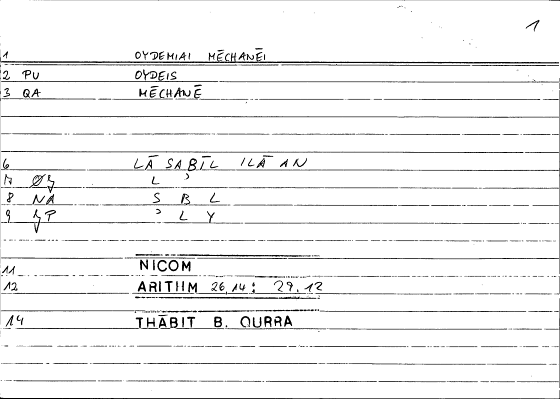 1
1 OYDEMIAI MĒCHANĒI
2 PU OYDEIS
3 QA MĒCHANĒ
6 LĀ SABĪL ILĀ AN
7 L ʾ
8 NA S B L
9 P ʾ L Y
11 NICOM
12 ARITHM 26,14: 29.12
14 THĀBIT B. QURRA